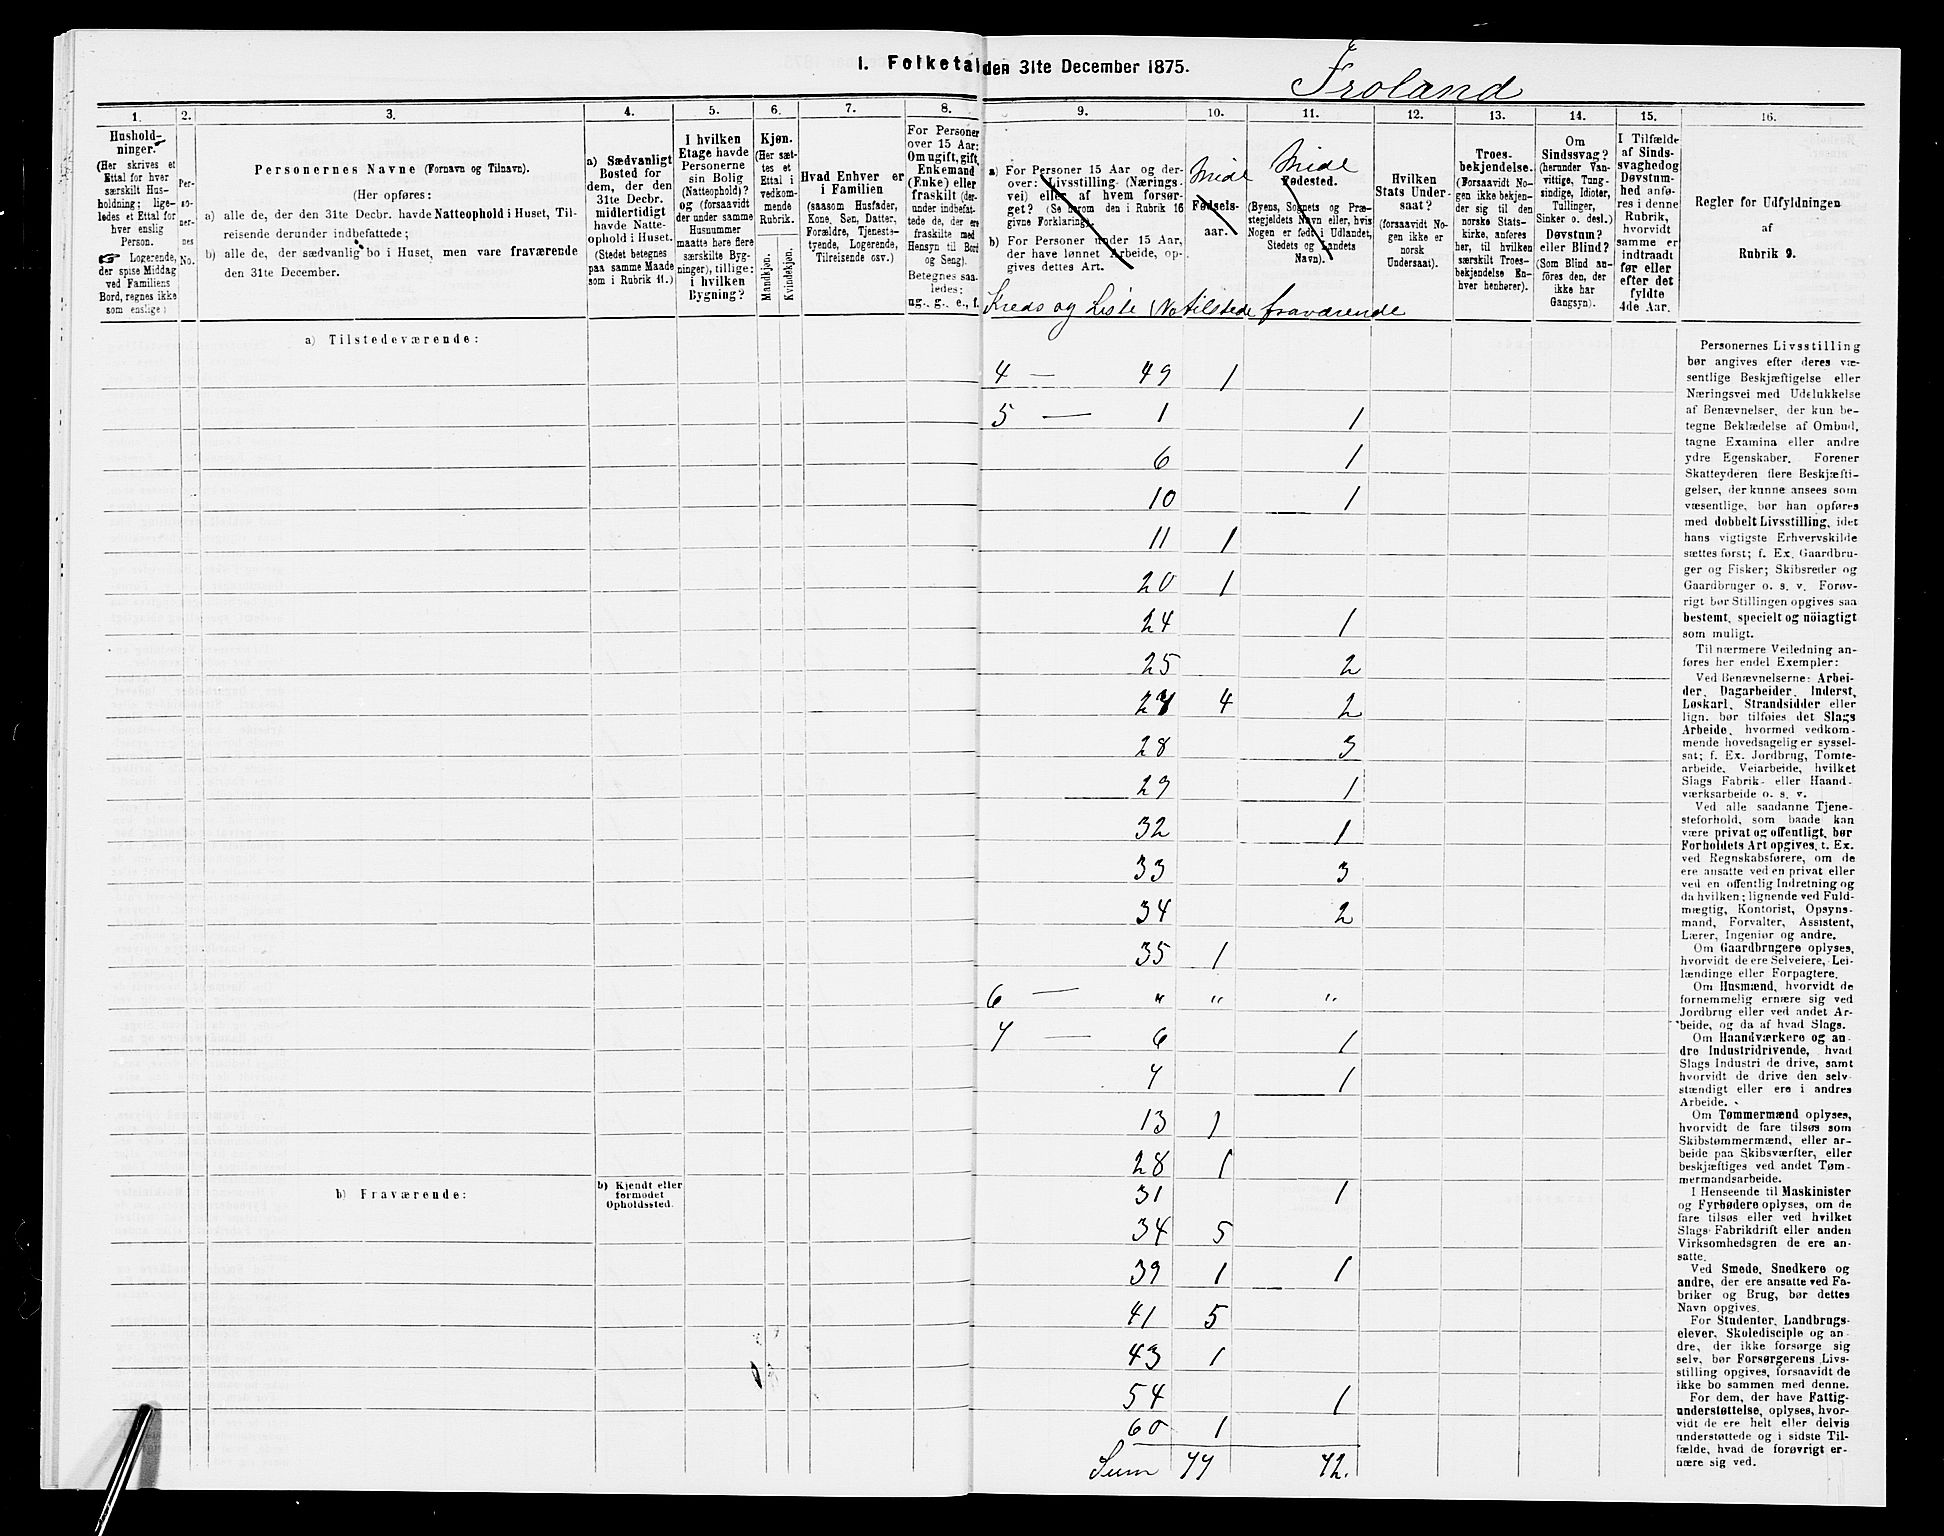 I. Folketal den 31te December 1875.
Froland
1.
Hushold-
ninger.
(Her skrives et
Ettal for hver
særskilt Hus-
holdning; lige-
ledes et Ettal for
hver enslig
Person.
☞ Logerende,
der spise Middag
ved Familiens
Bord, regnes ikke
som enslige.)
2.
Per-
so-
ner-
nes
No.
3.
Personernes Navne (Fornavn og Tilnavn).
(Her opføres:
a) alle de, der den 31te Decbr. havde Natteophold i Huset, Til-
reisende derunder indbefattede;
b) alle de, der sædvanlig bo i Huset, men vare fraværende
den 31te December.
4.
a) Sædvanligt
Bosted for
dem, der den
31te Decbr.
midlertidigt
havde Natte-
ophold i Huset.
(Stedet betegnes
paa samme Maade
som i Rubrik 11.)
5.
I hvilken
Etage havde
Personerne
sin Bolig
(Natteophold)?
og (forsaavidt
der under samme
Husnummer
maatte høre flere
særskilte Byg-
ninger), tillige:
i hvilken
Bygning?
6.
Kjøn.
(Her sæt-
tes et
Ettal i
vedkom-
mende
Rubrik.
Mandkjøn.
Kvindekjøn.
7.
Hvad Enhver er
i Familien
(saasom Husfader,
Kone, Søn, Datter,
Forældre, Tjenest-
tyende, Logerende,
Tilreisende osv.)
8.
For Personer
over 15 Aar:
Om ugift, gift,
Enkemand
(Enke) eller
fraskilt (der-
under indbefat-
tede de, der ere
fraskilte med
Hensyn til Bord
og Seng).
Betegnes saa-
ledes:
ug., g., e., f.
9.
a) For Personer 15 Aar og der-
over: Livsstilling (Nærings-
vei) eller af hvem forsør-
get? (Se herom den i Rubrik 16
givne Forklaring).
b) For Personer under 15 Aar,
der have lønnet Arbeide, op-
gives dettes Art.
10.
Midl
Fødsels-
aar.
11.
Midl
Fødested.
(Byens, Sognets og Præ-
stegjeldets Navn eller, hvis
Nogen er født i Udlandet,
Stedets og Landets
Navn).
12.
Hvilken
Stats Under-
saat?
(forsaavidt No-
gen ikke er
norsk
Undersaat).
13.
Troes-
bekjendelse.
(Forsaavidt No-
gen ikke bekjen-
der sig til den
norske Stats-
kirke, anføres
her, til hvilken
særskilt Troes-
bekjendelse En-
hver henhører).
14.
Om
Sindssvag?
(herunder Van-
vittige, Tung-
sindige, Idioter,
Tullinger,
Sinker o. desl.)
Døvstum?
eller Blind?
(Som Blind an-
føres den, der
ikke har
Gangsyn).
15.
I Tilfælde
af Sinds-
svaghed og
Døvstum-
hed anfø-
res i denne
Rubrik,
hvorvidt
samme er
indtraadt
før eller
efter det
fyldte
4de Aar.
16.
Regler for Udfyldningen
af
Rubrik 9.
Kreds og Liste No tilstede fraværende
a) Tilstedeværende:
4 — 49 1
5 — 1 1
6 1
10 1
11 1
20 1
24 1
25 2
27 4 2
28 3
29 1
32 1
33 3
34 2
35 1
6 — „ „ „
7 — 6 1
7 1
13 1
28 1
b) Fraværende:
b) Kjendt eller
formodet
Opholdssted.
31 1
34 5
39 1 1
41 5
43 1
54 1
60 1
Sum 77 72.
Personernes Livsstilling
bør angives efter deres væ-
sentlige Beskjæftigelse eller
Næringsvei med Udelukkelse
af Benævnelser, der kun be-
tegne Beklædelse af Ombud,
tagne Examina eller andre
ydre Egenskaber. Forener
Skatteyderen flere Beskjæfti-
gelser, der kunne ansees som
væsentlige, bør han opføres
med dobbelt Livsstilling, idet
hans vigtigste Erhvervskilde
sættes først; f. Ex. Gaardbru-
ger og Fisker; Skibsreder og
Gaardbruger o. s. v. Forøv-
rigt bør Stillingen opgives saa
bestemt, specielt og nöiagtigt
som muligt.
Til nærmere Veiledning an-
føres her endel Exempler:
Ved Benævnelserne: Arbei-
der, Dagarbeider, Inderst,
Løskarl, Strandsidder eller
lign. bør tilføies det Slags
Arbeide, hvormed vedkom-
mende hovedsagelig er syssel-
sat; f. Ex. Jordbrug, Tomte-
arbeide, Veiarbeide, hvilket
Slags Fabrik- eller Haand-
værksarbeide o. s. v.
Ved alle saadanne Tjene-
steforhold, som baade kan
være privat og offentligt, bør
Forholdets Art opgives, t. Ex.
ved Regnskabsførere, om de
ere ansatte ved en privat eller
ved en offentlig Indretning og
da hvilken; lignende ved Fuld-
mægtig, Kontorist, Opsyns-
mand, Forvalter, Assistent,
Lærer, Ingeniør og andre.
Om Gaardbrugere oplyses,
hvorvidt de ere Selveiere, Lei-
lændinge eller Forpagtere.
Om Husmænd, hvorvidt de
fornemmelig ernære sig ved
Jordbrug eller ved andet Ar-
beide, og da af hvad Slags.
Om Haandværkere og an-
dre Industridrivende, hvad
Slags Industri de drive, samt
hvorvidt de drive den selv-
stændigt eller ere i andres
Arbeide.
Om Tømmermænd oplyses,
hvorvidt de fare tilsøs som
Skibstømmermænd, eller ar-
beide paa Skibsværfter, eller
beskjæftiges ved andet Tøm-
mermandsarbeide.
I Henseende til Maskinister
og Fyrbødere oplyses, om de
fare tilsøs eller ved hvilket
Slags Fabrikdrift eller anden
Virksomhedsgren de ere an-
satte.
Ved Smede, Snedkere og
andre, der ere ansatte ved Fa-
briker og Brug, bør dettes
Navn opgives.
For Studenter, Landbrugs-
elever, Skoledisciple og an-
dre, der ikke forsørge sig
selv, bør Forsørgerens Livs-
stilling opgives, forsaavidt de
ikke bo sammen med denne.
For dem, der have Fattig-
understøttelse, oplyses, hvor-
vidt de ere helt eller delvis
understøttede og i sidste Til-
fælde, hvad de forøvrigt er-
nære sig ved.